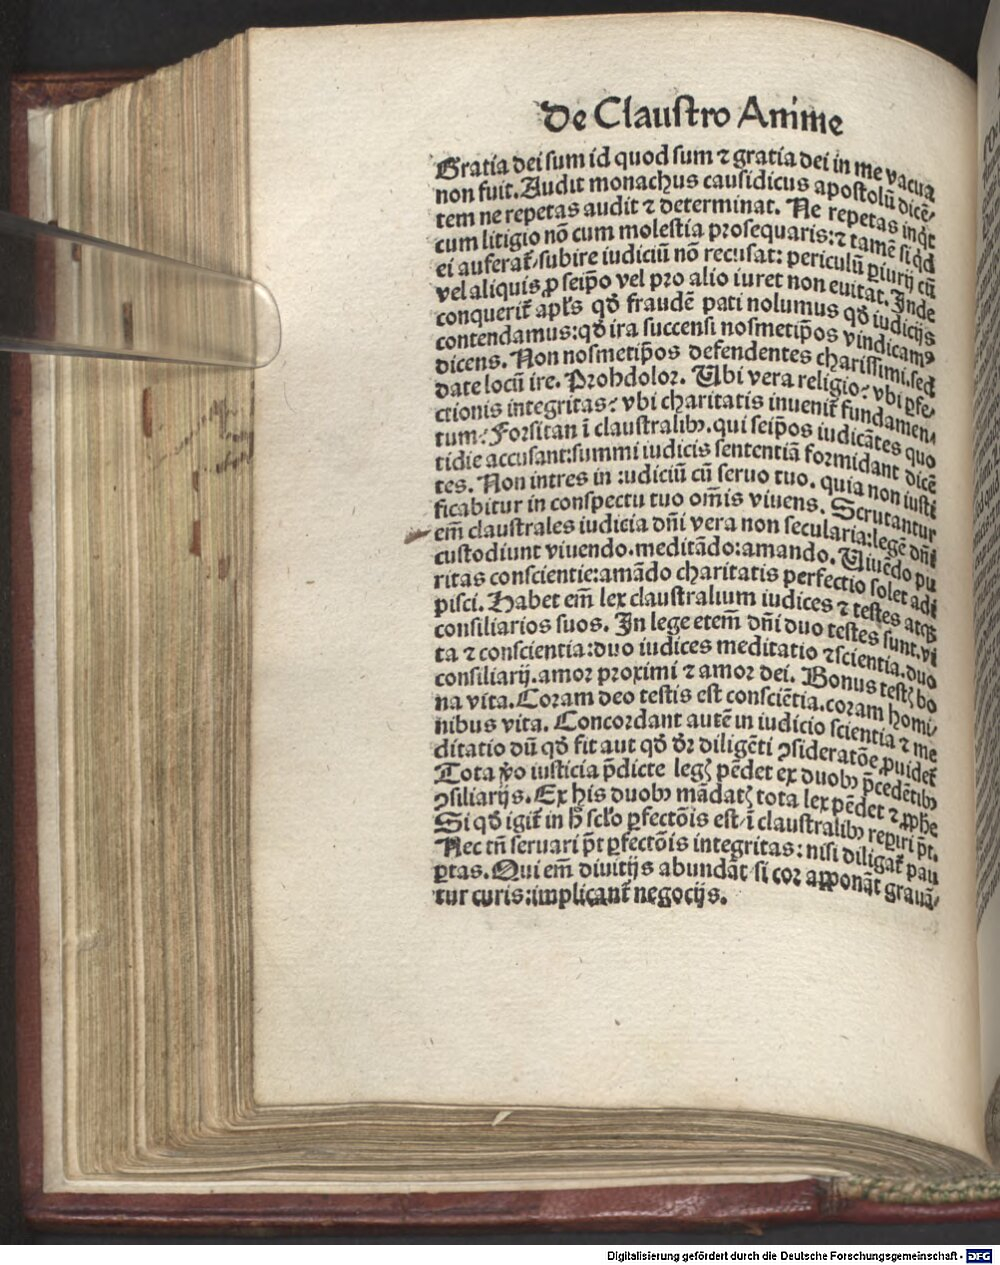 De Claustro Anime
Gratia dei sum id quod sum ⁊ gratia dei in me vacua
non fuit. Audit monachus causidicus apostolū dicē⸗
tem ne repetas audit ⁊ determinat. Ne repetas inqͥt
cum litigio nō cum molestia prosequaris: ⁊ tamē si qͥd
ei auferat᷑/subire iudiciū nō recusat: periculū ꝑiurij cū
vel aliquis ꝓ seip̄o vel pro alio iuret non euitat. Inde
conquerit᷑ apl's qd̄ fraudē pati nolumus qd̄ iudicijs
contendamus: qd̄ ira succensi nosmetip̄os vindicamꝰ
dicens. Non nosmetip̄os defendentes charissimi. sed
date locū ire. Prohdolor. Ubi vera religio: vbi ꝑfe⸗
ctionis integritas: vbi charitatis inuenit᷑ fundamen⸗
tum: Forsitan ī claustralibꝫ. qui seip̄os iudicātes quo
tidie accusant: summi iudicis sententiā formidant dicē
tes. Non intres in iudiciū cū seruo tuo. quia non iusti
ficabitur in conspectu tuo om̄is viuens. Scrutantur
em̄ claustrales iudicia dn̄i vera non secularia: legē dn̄i
custodiunt viuendo. meditādo: amando. Uiuēdo pu
ritas conscientie: amādo charitatis perfectio solet adi
pisci. Habet em̄ lex claustralium iudices ⁊ testes atqꝫ
consiliarios suos. In lege etem̄ dn̄i duo testes sunt. vi
ta ⁊ conscientia: duo iudices meditatio ⁊ scientia. duo
consiliarij. amor proximi ⁊ amor dei. Bonus testꝭ bo
na vita. Coram deo testis est consciētia. coram homi⸗
nibus vita. Concordant autē in iudicio scientia ⁊ me
ditatio dū qd̄ fit aut qd̄ dr̄ diligēti ꝯsideratōe ꝓuidet᷑
Tota v̄o iusticia p̄dicte legꝭ pēdet ex duobꝫ p̄cedētibꝫ
ꝯsiliarijs. Ex his duobꝫ mādatꝭ tota lex pēdet ⁊ ꝓphe
Si qd̄ igit᷑ in h̄ sclo ꝑfectōis est/ī claustralibꝫ reꝑiri pt̄.
Nec tn̄ seruari pt̄ ꝑfectōis integritas: nisi diligat᷑ pau
ꝑtas. Qui em̄ diuitijs abundāt si cor apponāt grauā⸗
tur curis: implicant᷑ negocijs.
Digitalisierung gefördert durch die Deutsche Forschungsgemeinschaft - DFG